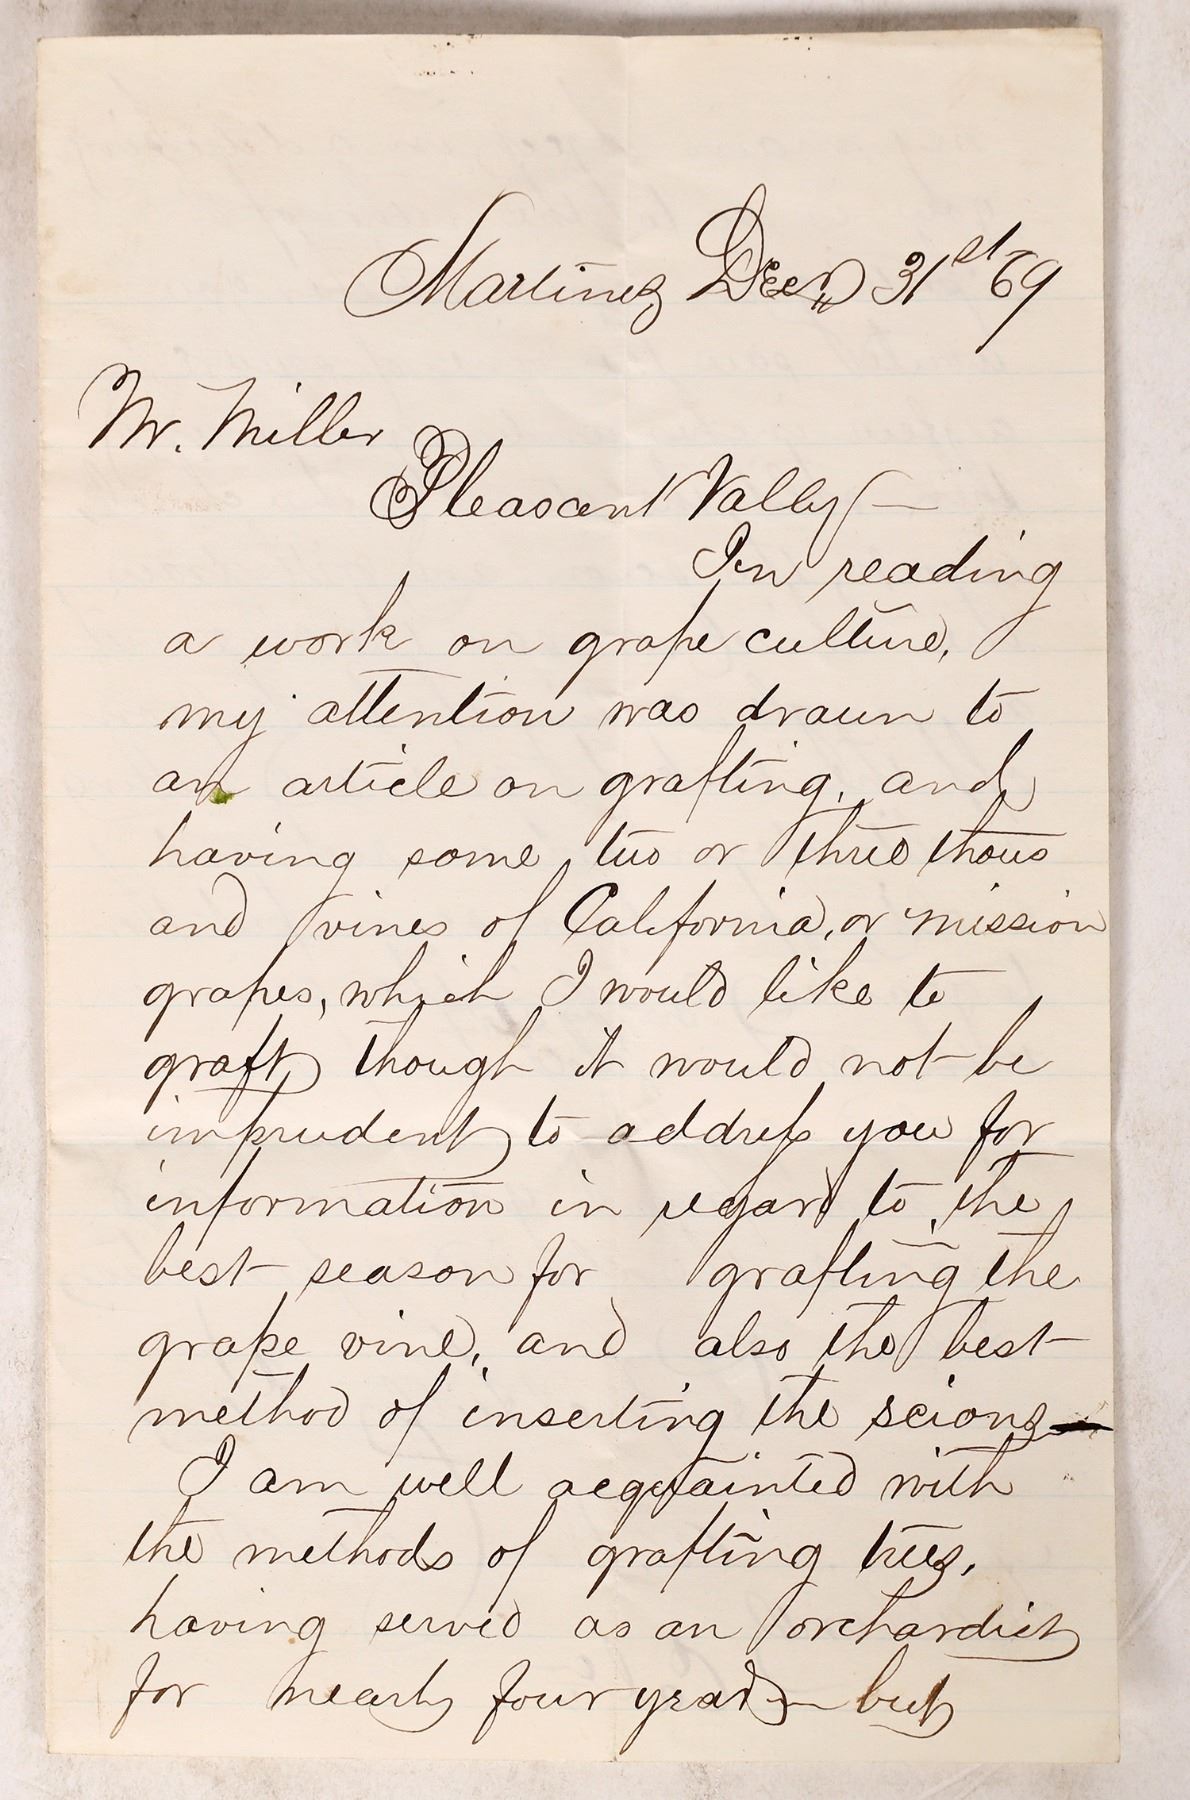 Martinez Decr 31st 69
Mr. Miller
Pleasant Vally —
In reading
a work on grape culture,
my attention was drawn to
an article on grafting, and
having some two or three thous
and vines of California, or mission
grapes, which I would like to
graft though it would not be
imprudent to address you for
information in regard to the
best season for grafting the
grape vine, and also the best
method of inserting the scions—
I am well acquainted with
the methods of grafting trees,
having served as an orchardist
for nearly four years— but